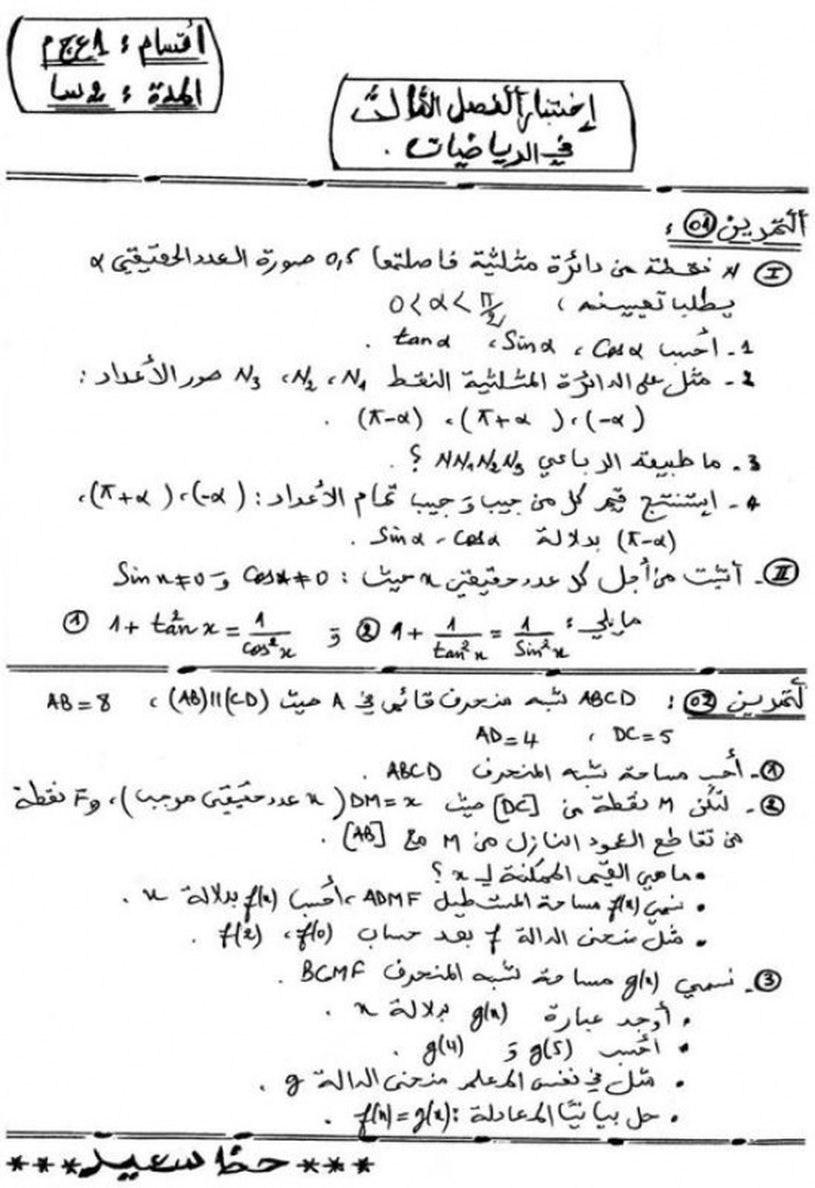 أقسام : 1ع ج م
المدة : 2سا
إختبار الفصل الثالث
في الرياضيات .
التمرين 01 :
I N نقطة من دائرة مثلثية فاصلتها 0,5 صورة العدد الحقيقي α
يطلب تعيينه ، 0<α<π/2
1- أحسب cosα ، Sinα ، tanα .
2- مثل على الدائرة المثلثية النقط N1 ، N2 ، N3 صور الأعداد :
(-α) ، (π+α) ، (π-α) .
3- ما طبيعة الرباعي NN1N2N3 ؟ .
4- إستنتج قيم كل من جيب و جيب تمام الأعداد : (-α) ، (π+α) ،
(π-α) بدلالة cosα ، Sinα .
II- أثبت من أجل كل عدد حقيقي x حيث : cosx≠0 و Sinx≠0
ما يلي :
① 1+tan²x = 1/cos²x و ② 1+1/tan²x = 1/Sin²x
التمرين 02 : ABCD شبه منحرف قائم في A حيث (AB)//(CD) ، AB=8
DC=5 ، AD=4
①- أحسب مساحة شبه المنحرف ABCD .
②- لتكن M نقطة من [DC] حيث DM=x (x عدد حقيقي موجب) ، و F نقطة
من تقاطع العمود النازل من M مع [AB] .
• ما هي القيم الممكنة لـ x ؟
• نسمي f(x) مساحة المستطيل ADMF ، أحسب f(x) بدلالة x .
• مثل منحنى الدالة f بعد حساب f(0) ، f(2) .
③- نسمي g(x) مساحة شبه المنحرف BCMF .
• أوجد عبارة g(x) بدلالة x .
• أحسب g(5) و g(4) .
• مثل في نفس المعلم منحنى الدالة g .
• حل بيانيا المعادلة : f(x)=g(x) .
*** حظ سعيد ***